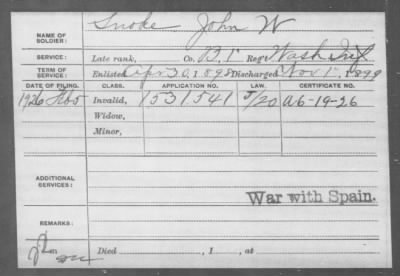 NAME OF SOLDIER: Snoke John W
SERVICE: Late rank, Co. B, 1 Reg't Wash Inf
TERM OF SERVICE: Enlisted Apr 30, 1898 Discharged Nov 1, 1899
DATE OF FILING. CLASS. APPLICATION NO. LAW. CERTIFICATE NO.
1926 Feb 5 Invalid, 1531541 J/20 A6-19-26
Widow,
Minor,
ADDITIONAL SERVICES:
War with Spain.
REMARKS:
Died , 1 , at